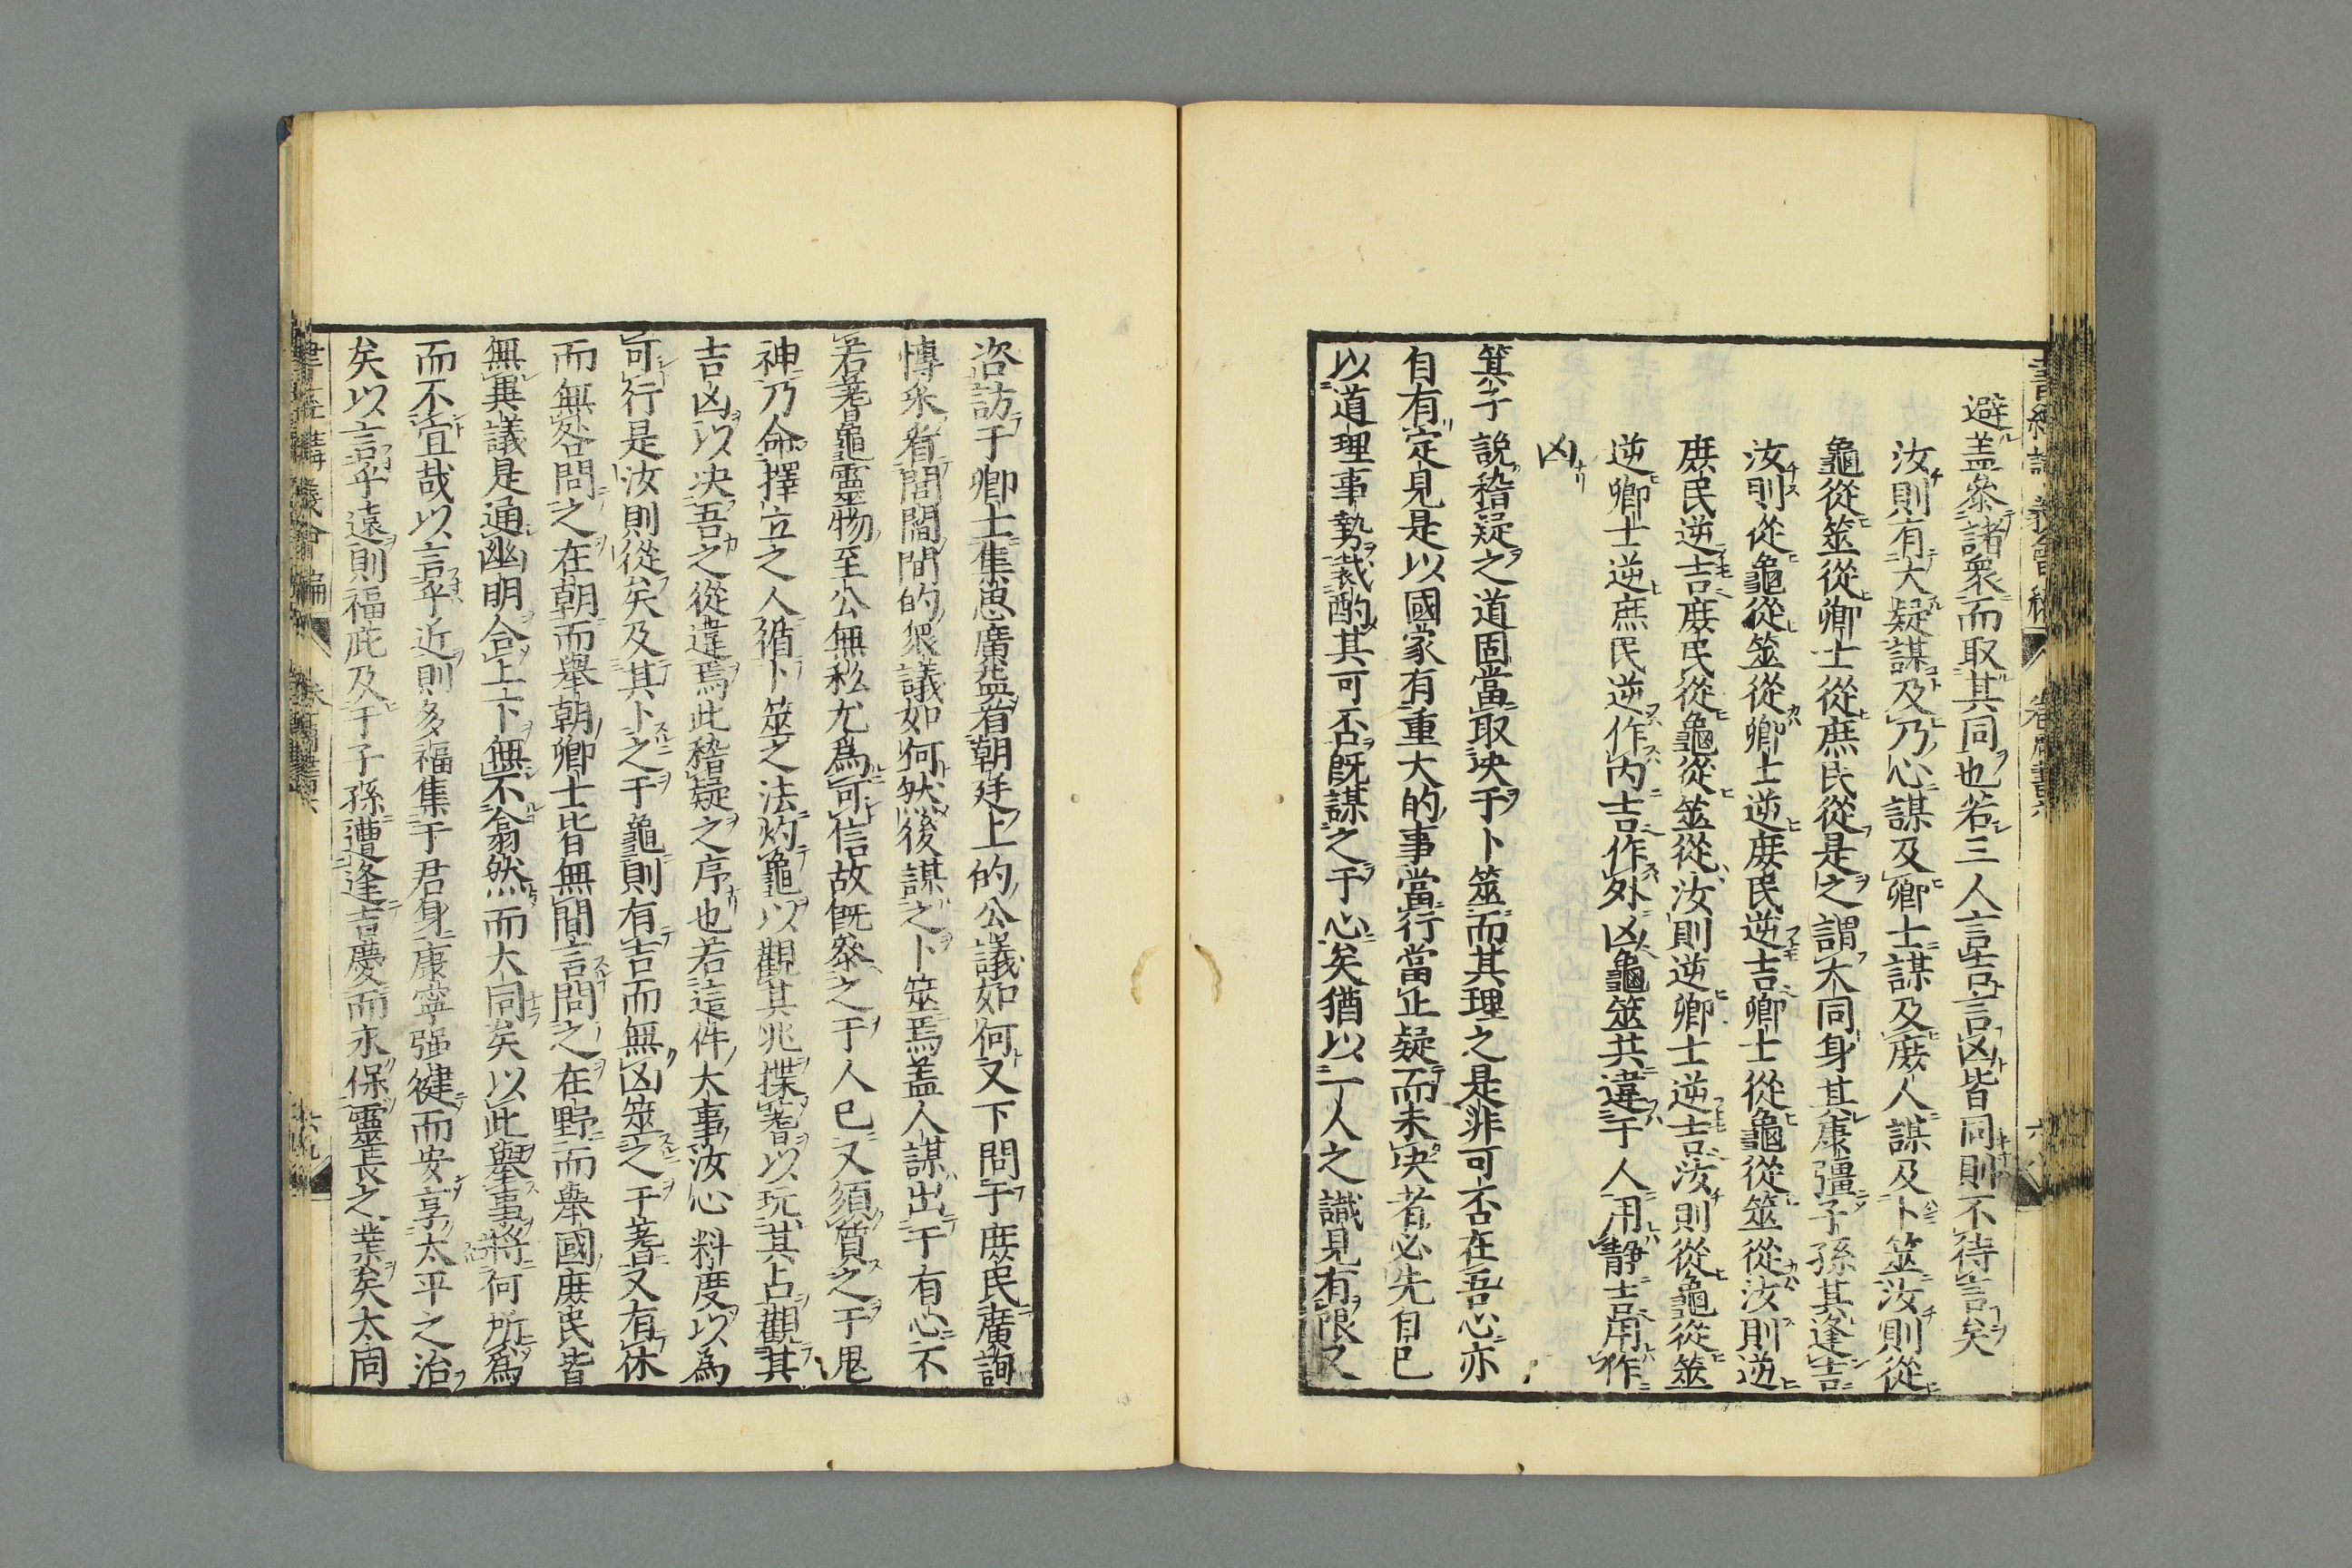 避盖叅諸衆而取其同也若三人言吉言凶皆同則不待言矣
汝則有大疑謀及乃心謀及卿士謀及庻人謀及卜筮汝則從
龜從筮從卿士從庶民從是之謂大同身其康彊子孫其逢吉
汝則從龜從筮從卿士逆庻民逆吉卿士從龜從筮從汝則逆
庻民逆吉庻民從龜從筮從汝則逆卿士逆吉汝則從龜從筮
逆卿士逆庶民逆作内吉作外凶龜筮共違于人用静吉用作
凶
箕子說稽疑之道固當取决于卜筮而其理之是非可否在吾心亦
自有定見是以國家有重大的事當行當止疑而未决者必先自已
以道理事勢裁酌其可否旣謀之于心矣猶以一人之識見有限又
咨訪于卿士集思廣益看朝廷上的公議如何又下問于庻民廣詢
愽采看閭閻間的衆議如何然後謀之卜筮焉盖人謀出于有心不
若蓍龜靈物至公無私尤爲可信故旣叅之于人已又須質之于鬼
神乃命擇立之人循卜筮之法灼龜以觀其兆揲蓍以玩其占觀其
吉凶以决吾之從違焉此稽疑之序也若這件大事汝心料度以為
可行是汝則從矣及其卜之于龜則有吉而無凶筮之于蓍又有休
而無咎問之在朝而舉朝卿士皆無間言問之在野而舉國庻民皆
無異議是通幽明合上下無不翕然而大同矣以此舉事將何所爲
而不宜哉以言乎近則多福集于君身康寧强健而安享太平之治
矣以言乎遠則福庇及于子孫遭逢吉慶而永保靈長之業矣大同
書經講義會編 卷